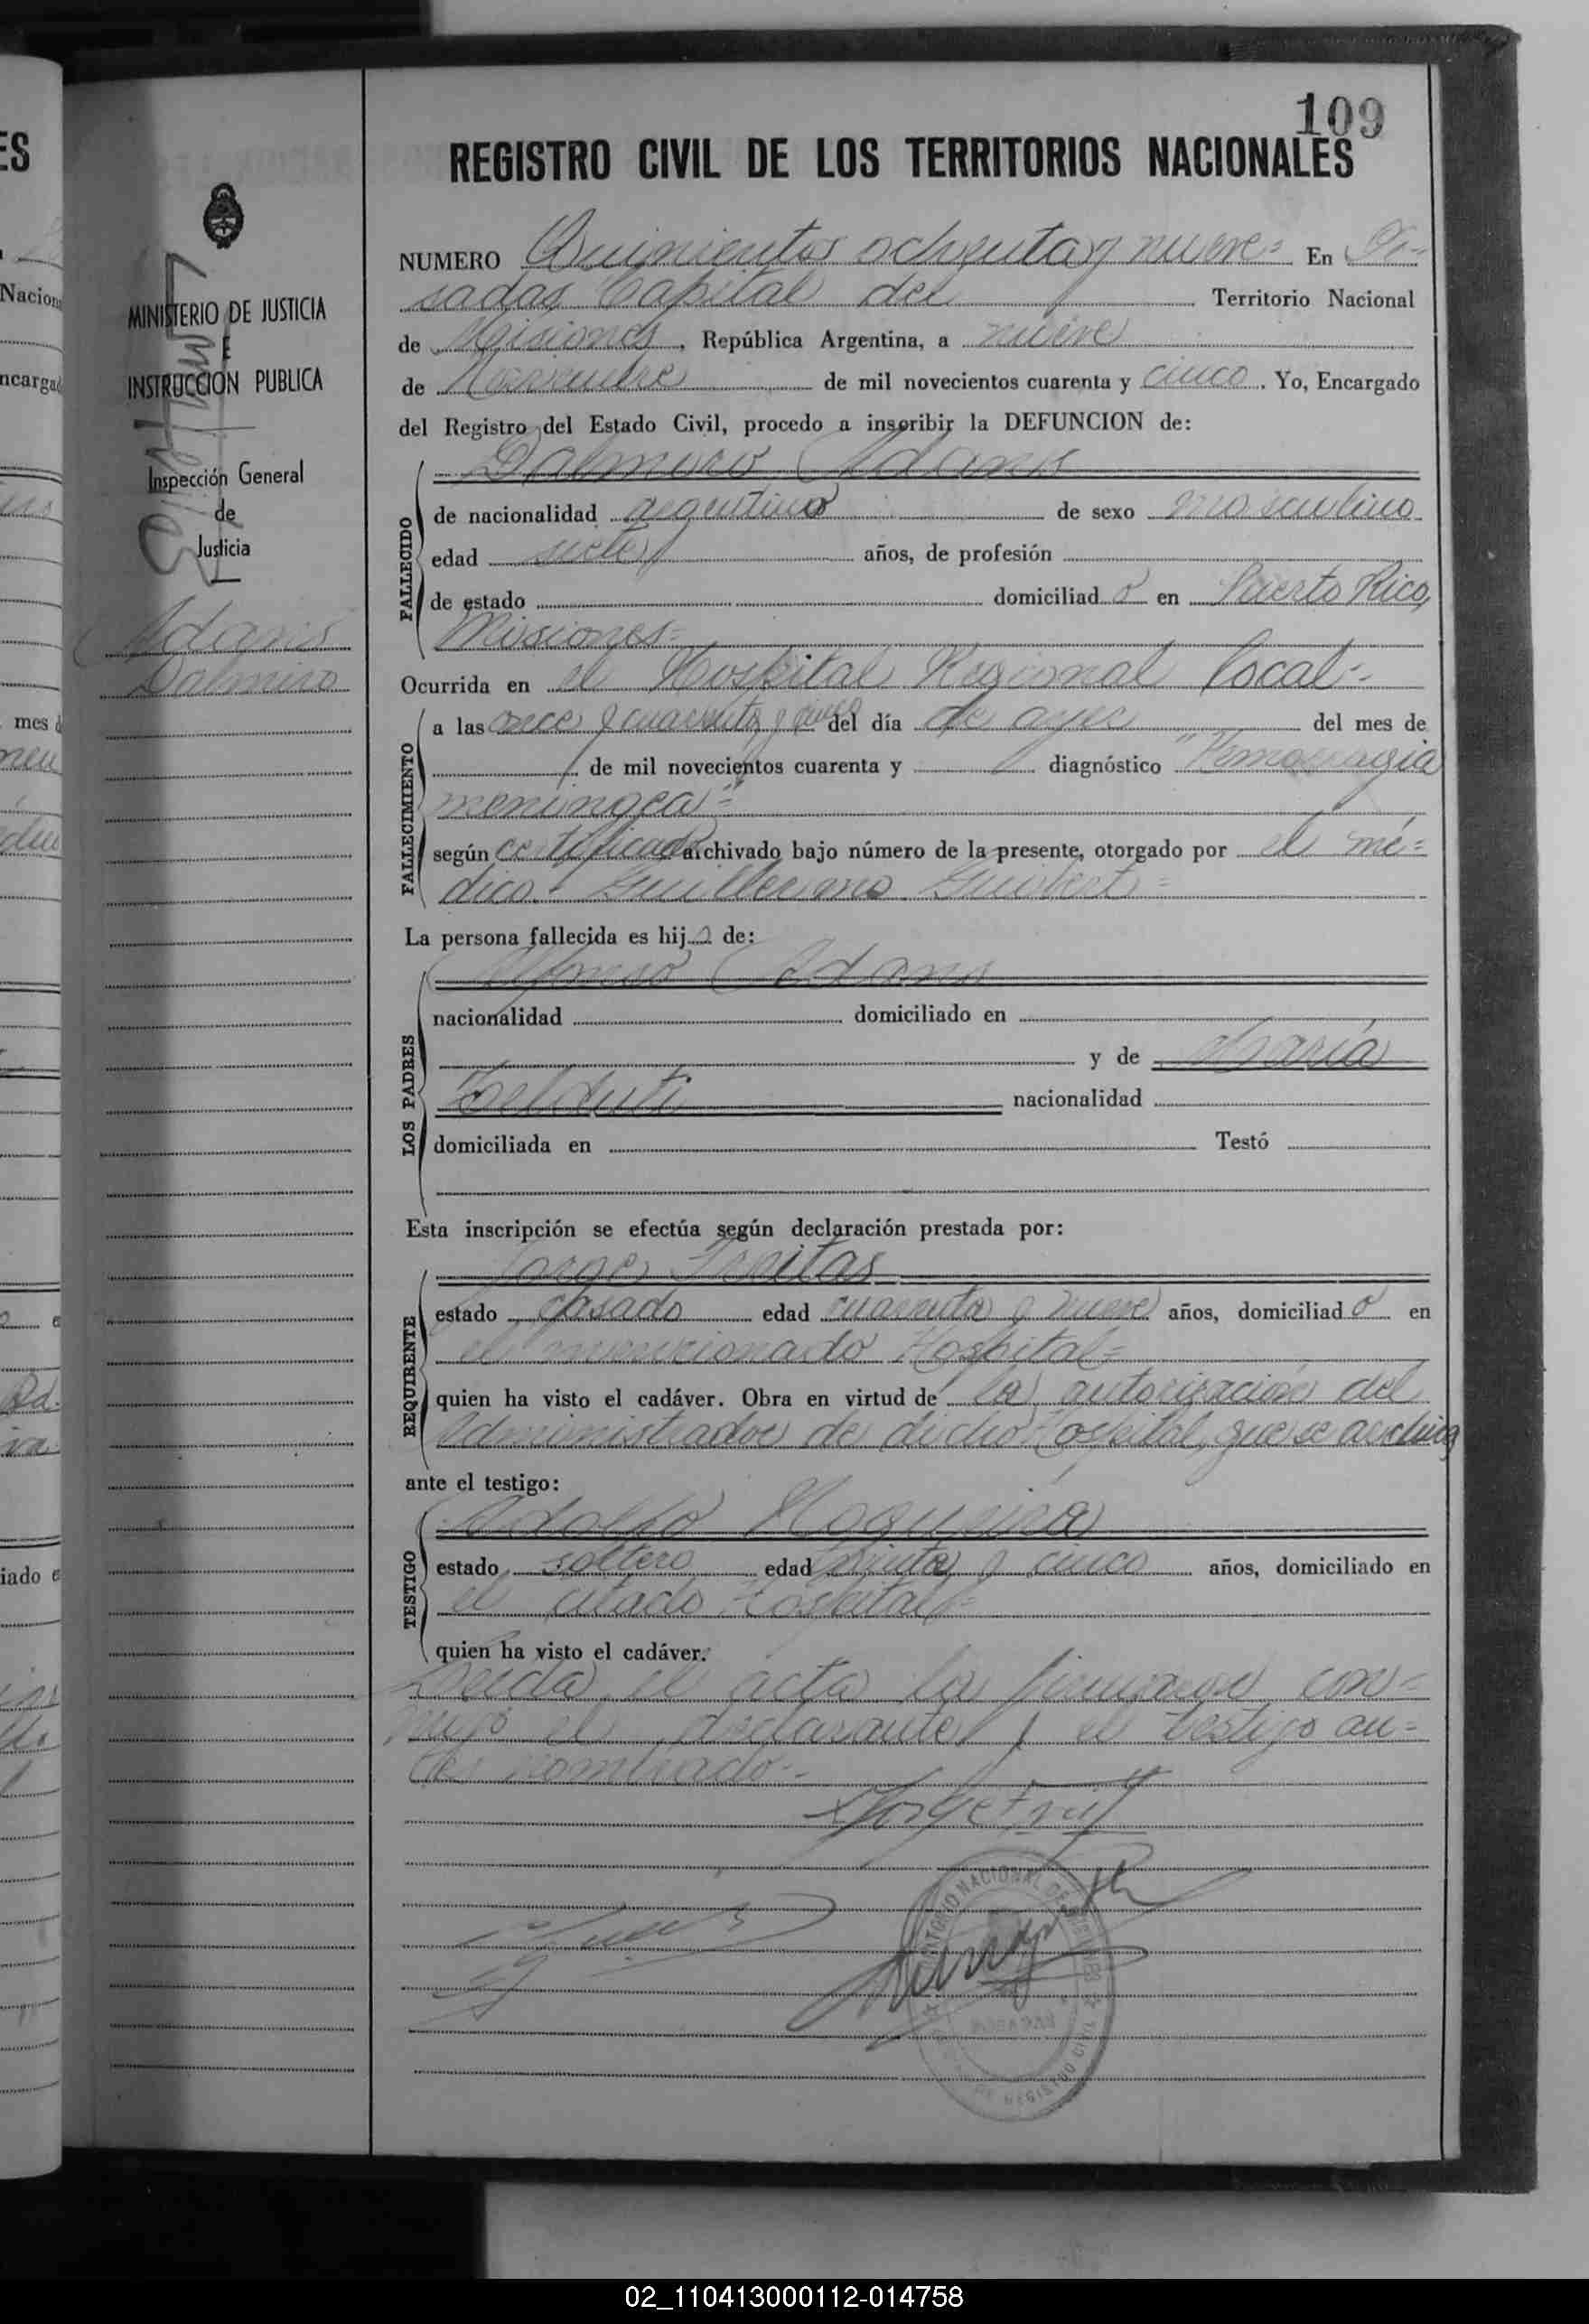 109
REGISTRO CIVIL DE LOS TERRITORIOS NACIONALES
NUMERO Quinientos ochenta y nueve= En Po-
sadas Capital del Territorio Nacional
de Misiones, República Argentina, a nueve
de Noviembre de mil novecientos cuarenta y cinco. Yo, Encargado
del Registro del Estado Civil, procedo a inscribir la DEFUNCION de:
Dalmiro Adanis
FALLECIDO
de nacionalidad argentino de sexo masculino
edad siete años, de profesión
de estado domiciliado en Puerto Rico,
Misiones=
Ocurrida en el Hospital Regional local-
FALLECIMIENTO
a las once y cuarenta y cinco del día de ayer del mes de
de mil novecientos cuarenta y diagnóstico "Hemorragia
meningea"
según certificado archivado bajo número de la presente, otorgado por el mé=
dico Guillermo
La persona fallecida es hijo de:
LOS PADRES
Alfonso Adanis
nacionalidad domiciliado en
y de María
nacionalidad
domiciliada en Testó
Esta inscripción se efectúa según declaración prestada por:
REQUIRENTE
Jorge
estado casado edad cuarenta y nueve años, domiciliado en
el mencionado Hospital=
quien ha visto el cadáver. Obra en virtud de la autorización del
Administrador de dicho Hospital, que se archiva
ante el testigo:
TESTIGO
Adolfo Nogueira
estado soltero edad treinta y cinco años, domiciliado en
el citado Hospital=
quien ha visto el cadáver.
Leida el acta la firmaron con=
migo el declarante y el testigo an=
tes nombrado--
MINISTERIO DE JUSTICIA
E
INSTRUCCION PUBLICA
Inspección General
de
Justicia
Adanis
Dalmiro
02_110413000112-014758